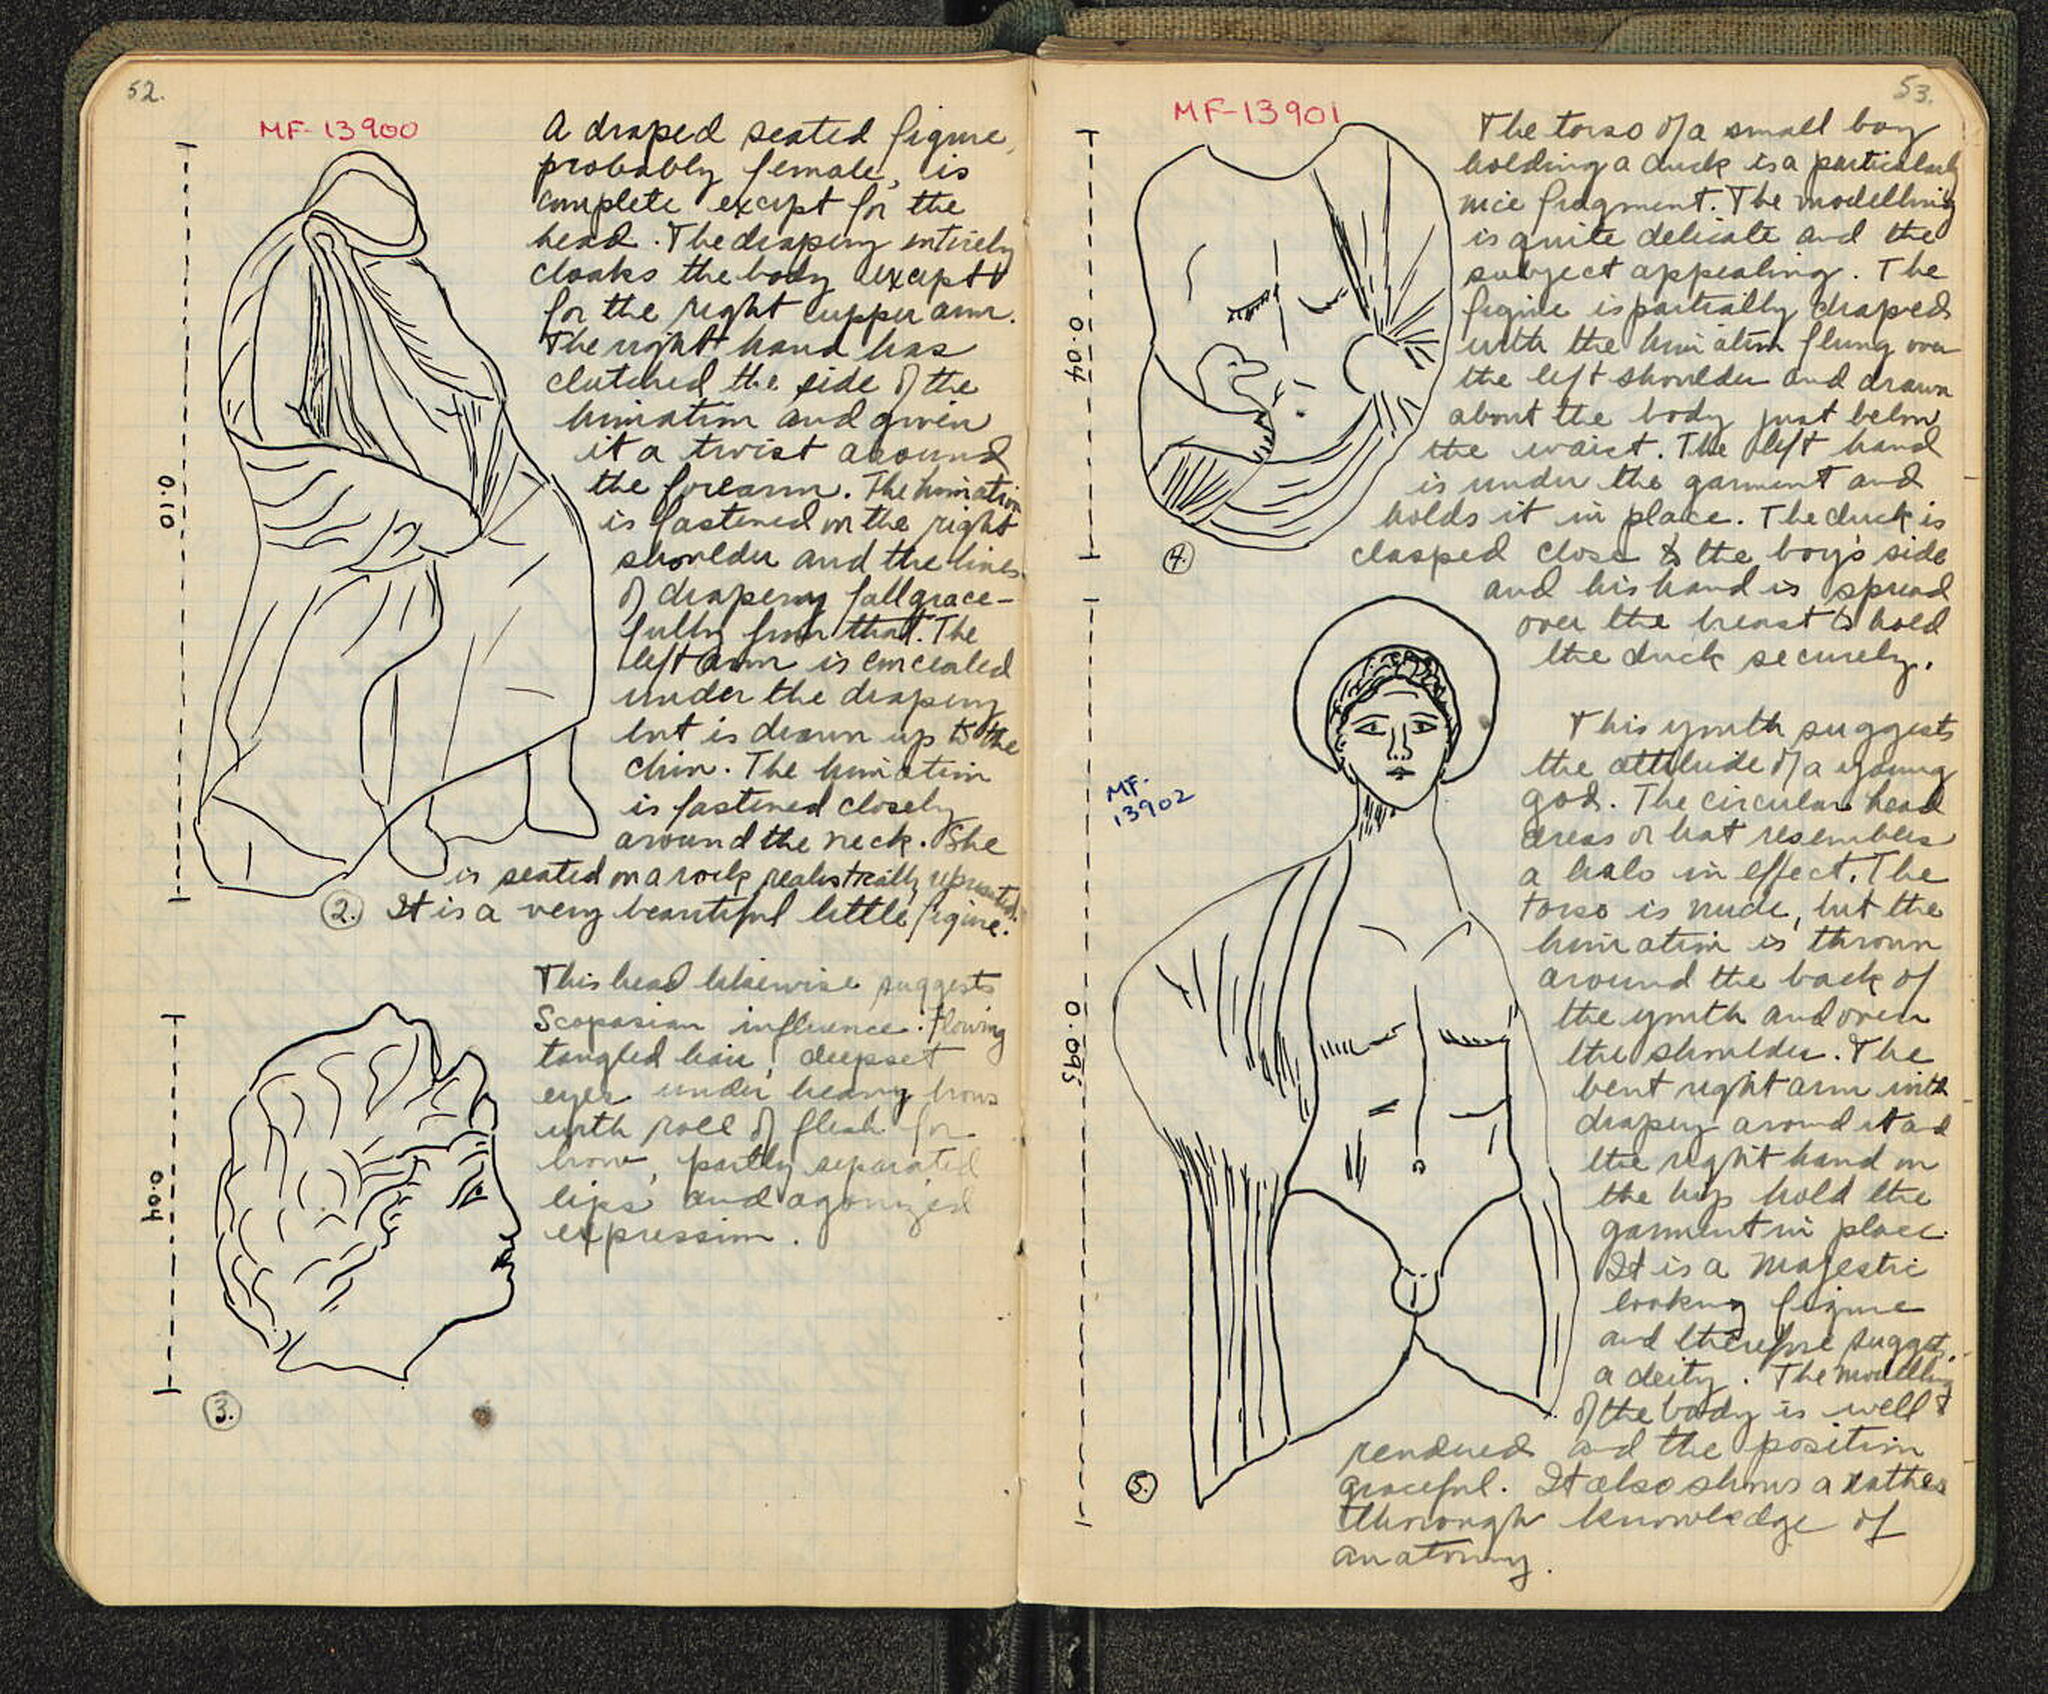 52.
MF-13900
0.10
A draped seated figure,
probably female, is
complete except for the
head. The drapery entirely
cloaks the body except
for the right upper arm.
The right hand has
clutched the side of the
himation and given
it a twist around
the forearm. The himation
is fastened on the right
shoulder and the lines
of drapery fall grace-
fully from that. The
left arm is concealed
under the drapery
but is drawn up to the
chin. The himation
is fastened closely
around the neck. She
is seated on a rock realistically represented.
2. It is a very beautiful little figure.
0.04
This head likewise suggests
Scopasian influence. Flowing
tangled hair, deepset
eyes under heavy brows
with roll of flesh for
brow, partly separated
lips and agonized
expression.
3.
53.
MF-13901
0.04
The torso of a small boy
holding a duck is a particularly
nice fragment. The modelling
is quite delicate and the
subject appealing. The
figure is partially draped
with the himation flung over
the left shoulder and drawn
about the body just below
the waist. The left hand
is under the garment and
holds it in place. The duck is
4.
clasped close to the boy's side
and his hand is spread
over the breast to hold
the duck securely.
MF-
13902
0.095
This youth suggests
the attitude of a young
god. The circular head
dress or hat resembles
a halo in effect. The
torso is nude, but the
himation is thrown
around the back of
the youth and over
the shoulder. The
bent right arm with
drapery around it and
the right hand on
the hips hold the
garment in place.
It is a majestic
looking figure
and therefore suggests
a deity. The modelling
of the body is well
rendered and the position
5.
graceful. It also shows a rather
thorough knowledge of
anatomy.